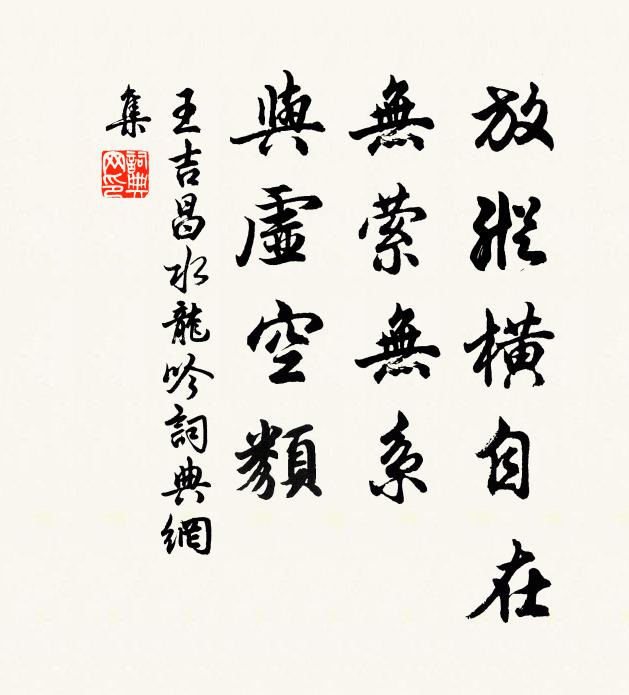 放縱橫自在
無萦無系
與虛空類
王吉昌水龍吟詞典網
集
詞典
网印